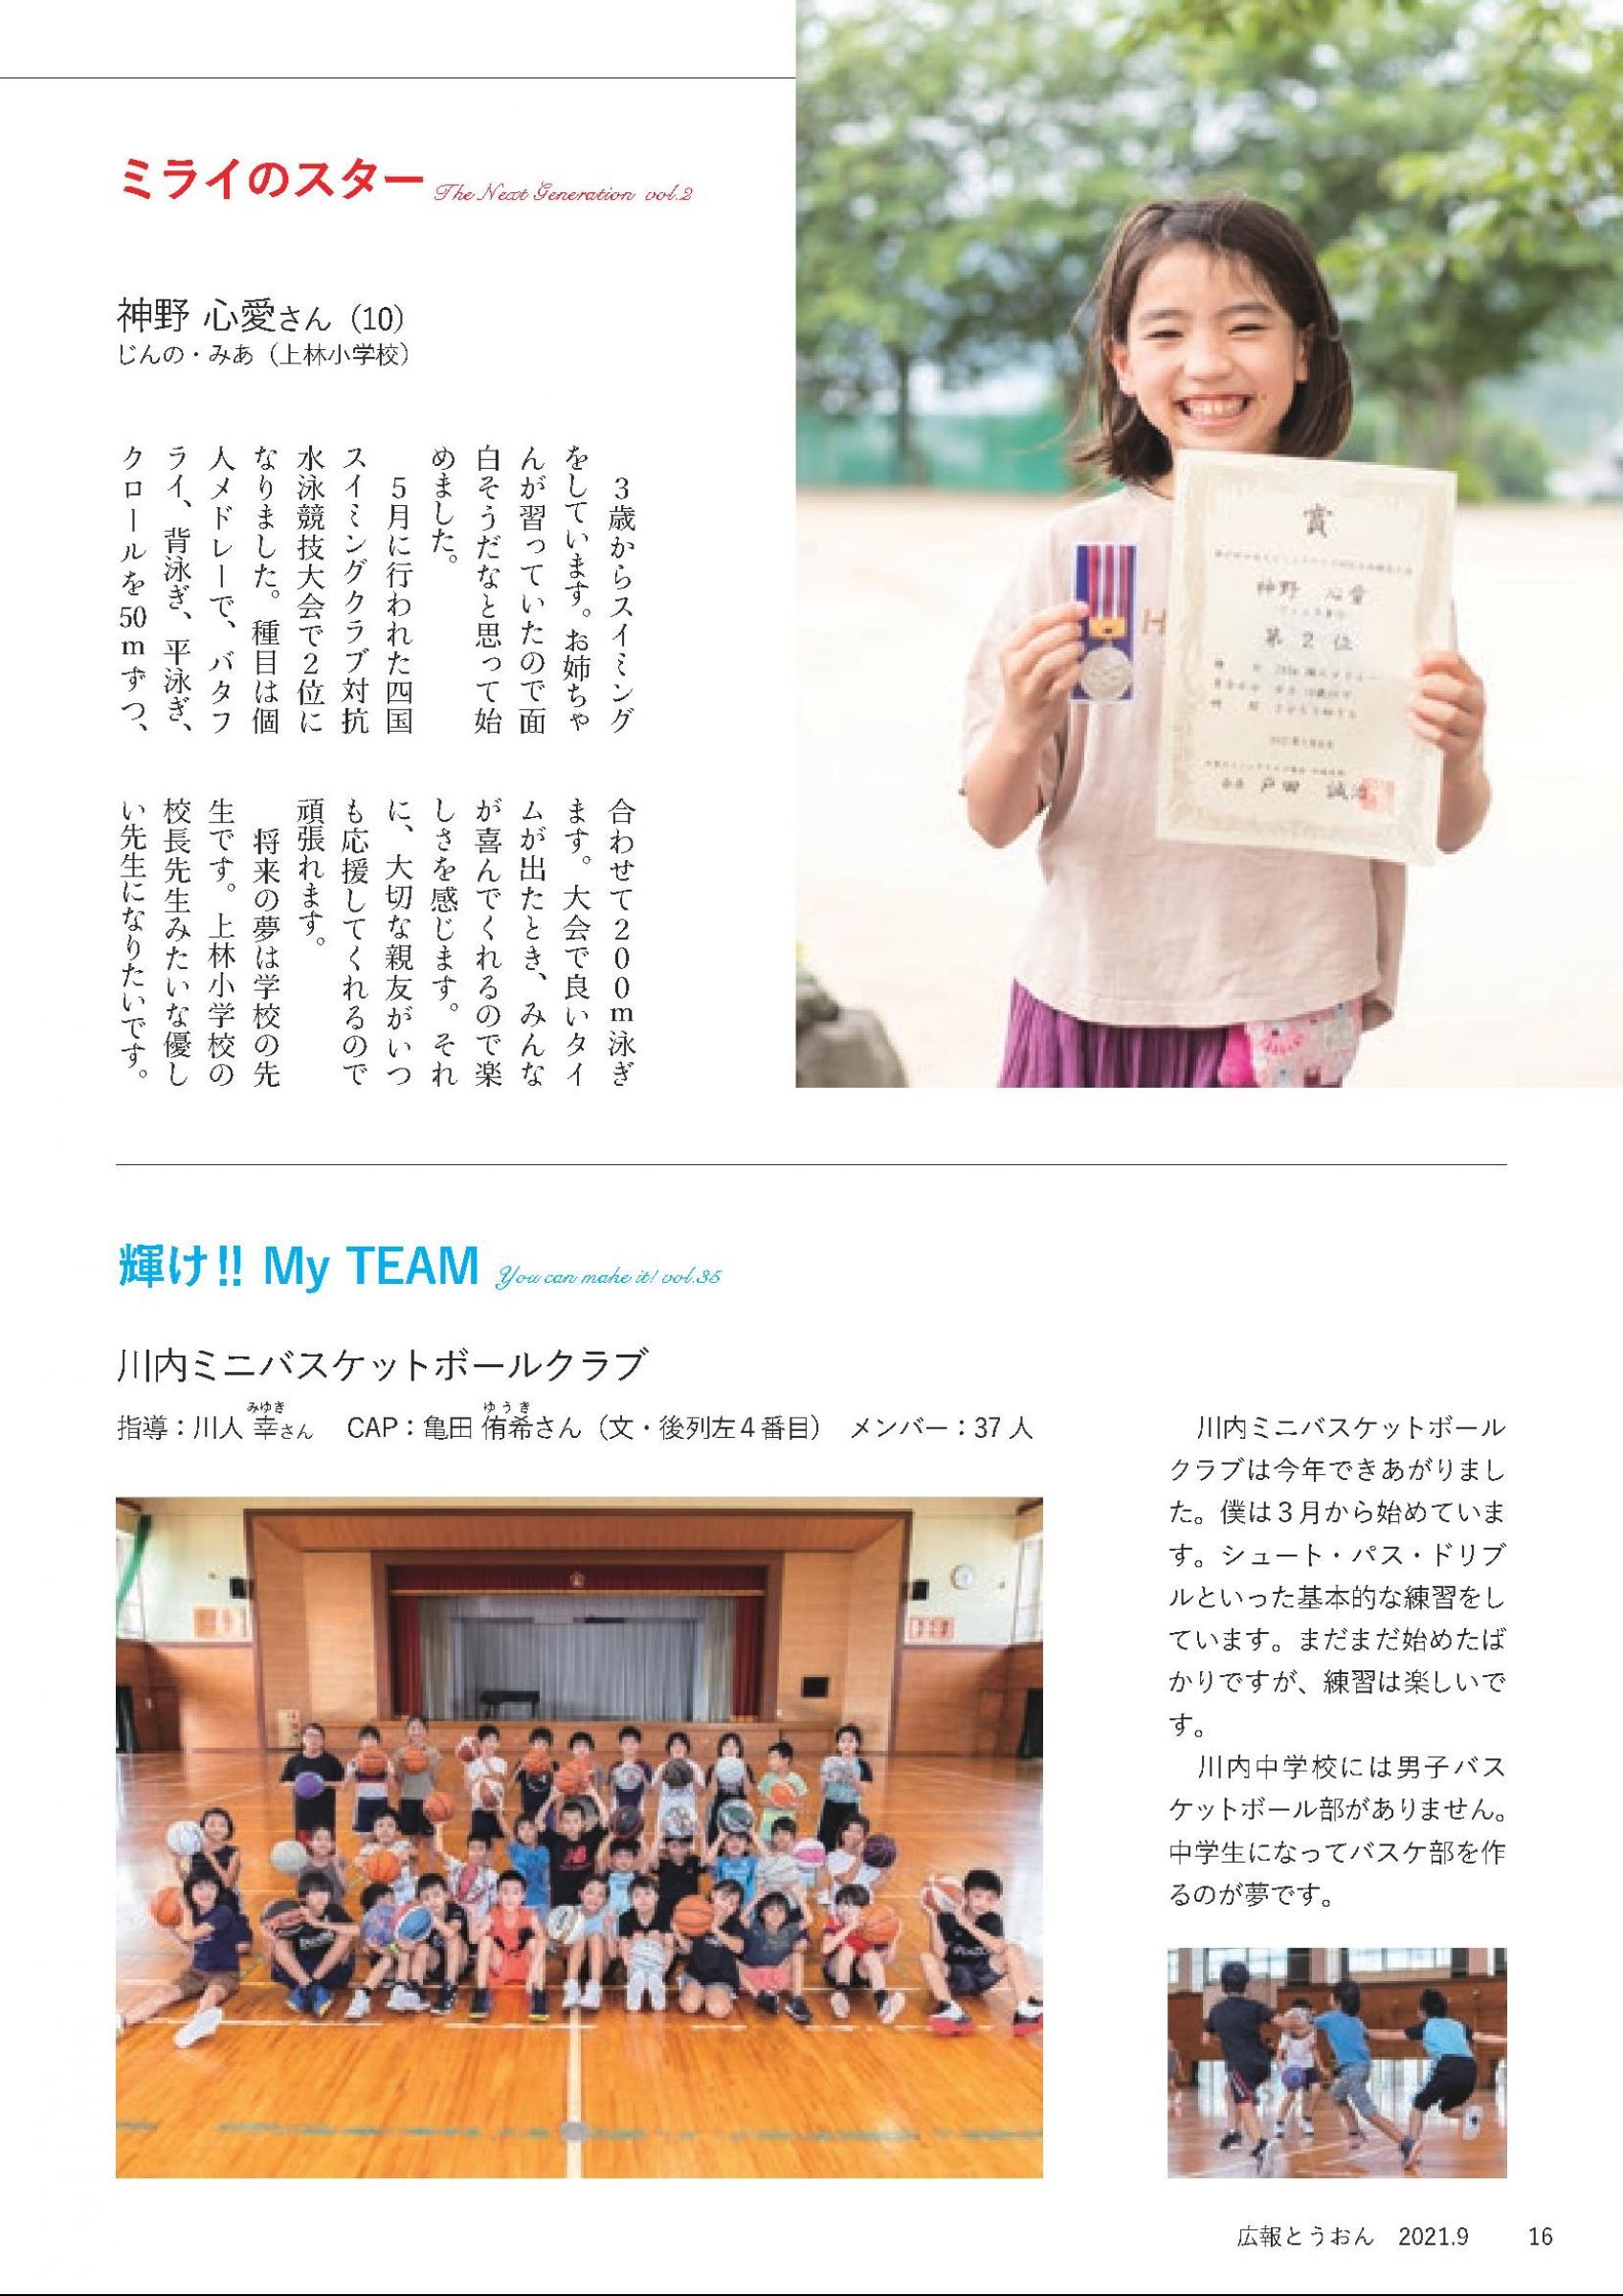 ミライのスター The Next Generation vol.2
神野 心愛さん（10）
じんの・みあ（上林小学校）
３歳からスイミング
をしています。お姉ちゃ
んが習っていたので面
白そうだなと思って始
めました。
５月に行われた四国
スイミングクラブ対抗
水泳競技大会で２位に
なりました。種目は個
人メドレーで、バタフ
ライ、背泳ぎ、平泳ぎ、
クロールを50ｍずつ、
合わせて２００ｍ泳ぎ
ます。大会で良いタイ
ムが出たとき、みんな
が喜んでくれるので楽
しさを感じます。それ
に、大切な親友がいつ
も応援してくれるので
頑張れます。
将来の夢は学校の先
生です。上林小学校の
校長先生みたいな優し
い先生になりたいです。
賞
神野 心愛
第２位
戸田 誠治
輝け!! My TEAM You can make it! vol.35
川内ミニバスケットボールクラブ
みゆき ゆうき
指導：川人 幸さん CAP：亀田 侑希さん（文・後列左４番目） メンバー：37 人
川内ミニバスケットボール
クラブは今年できあがりまし
た。僕は３月から始めていま
す。シュート・パス・ドリブ
ルといった基本的な練習をし
ています。まだまだ始めたば
かりですが、練習は楽しいで
す。
川内中学校には男子バス
ケットボール部がありません。
中学生になってバスケ部を作
るのが夢です。
広報とうおん 2021.9 16